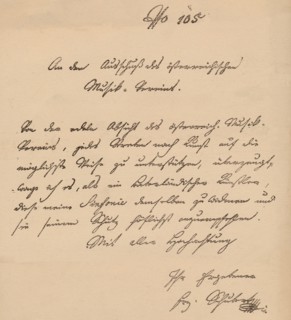 No 105
An den Ausschuß des österreichischen
Musik-Vereins.
Von der edlen Absicht des österreich. Musik-
Vereins, jedes Streben nach Kunst auf die
möglichste Weise zu unterstützen, überzeugt,
wage ich es, als ein vaterländischer Künstler,
diese meine Sinfonie demselben zu widmen und
sie seinem Schutz höflichst anzuempfehlen.
Mit aller Hochachtung
Ihr Ergebener
Frz. Schubert